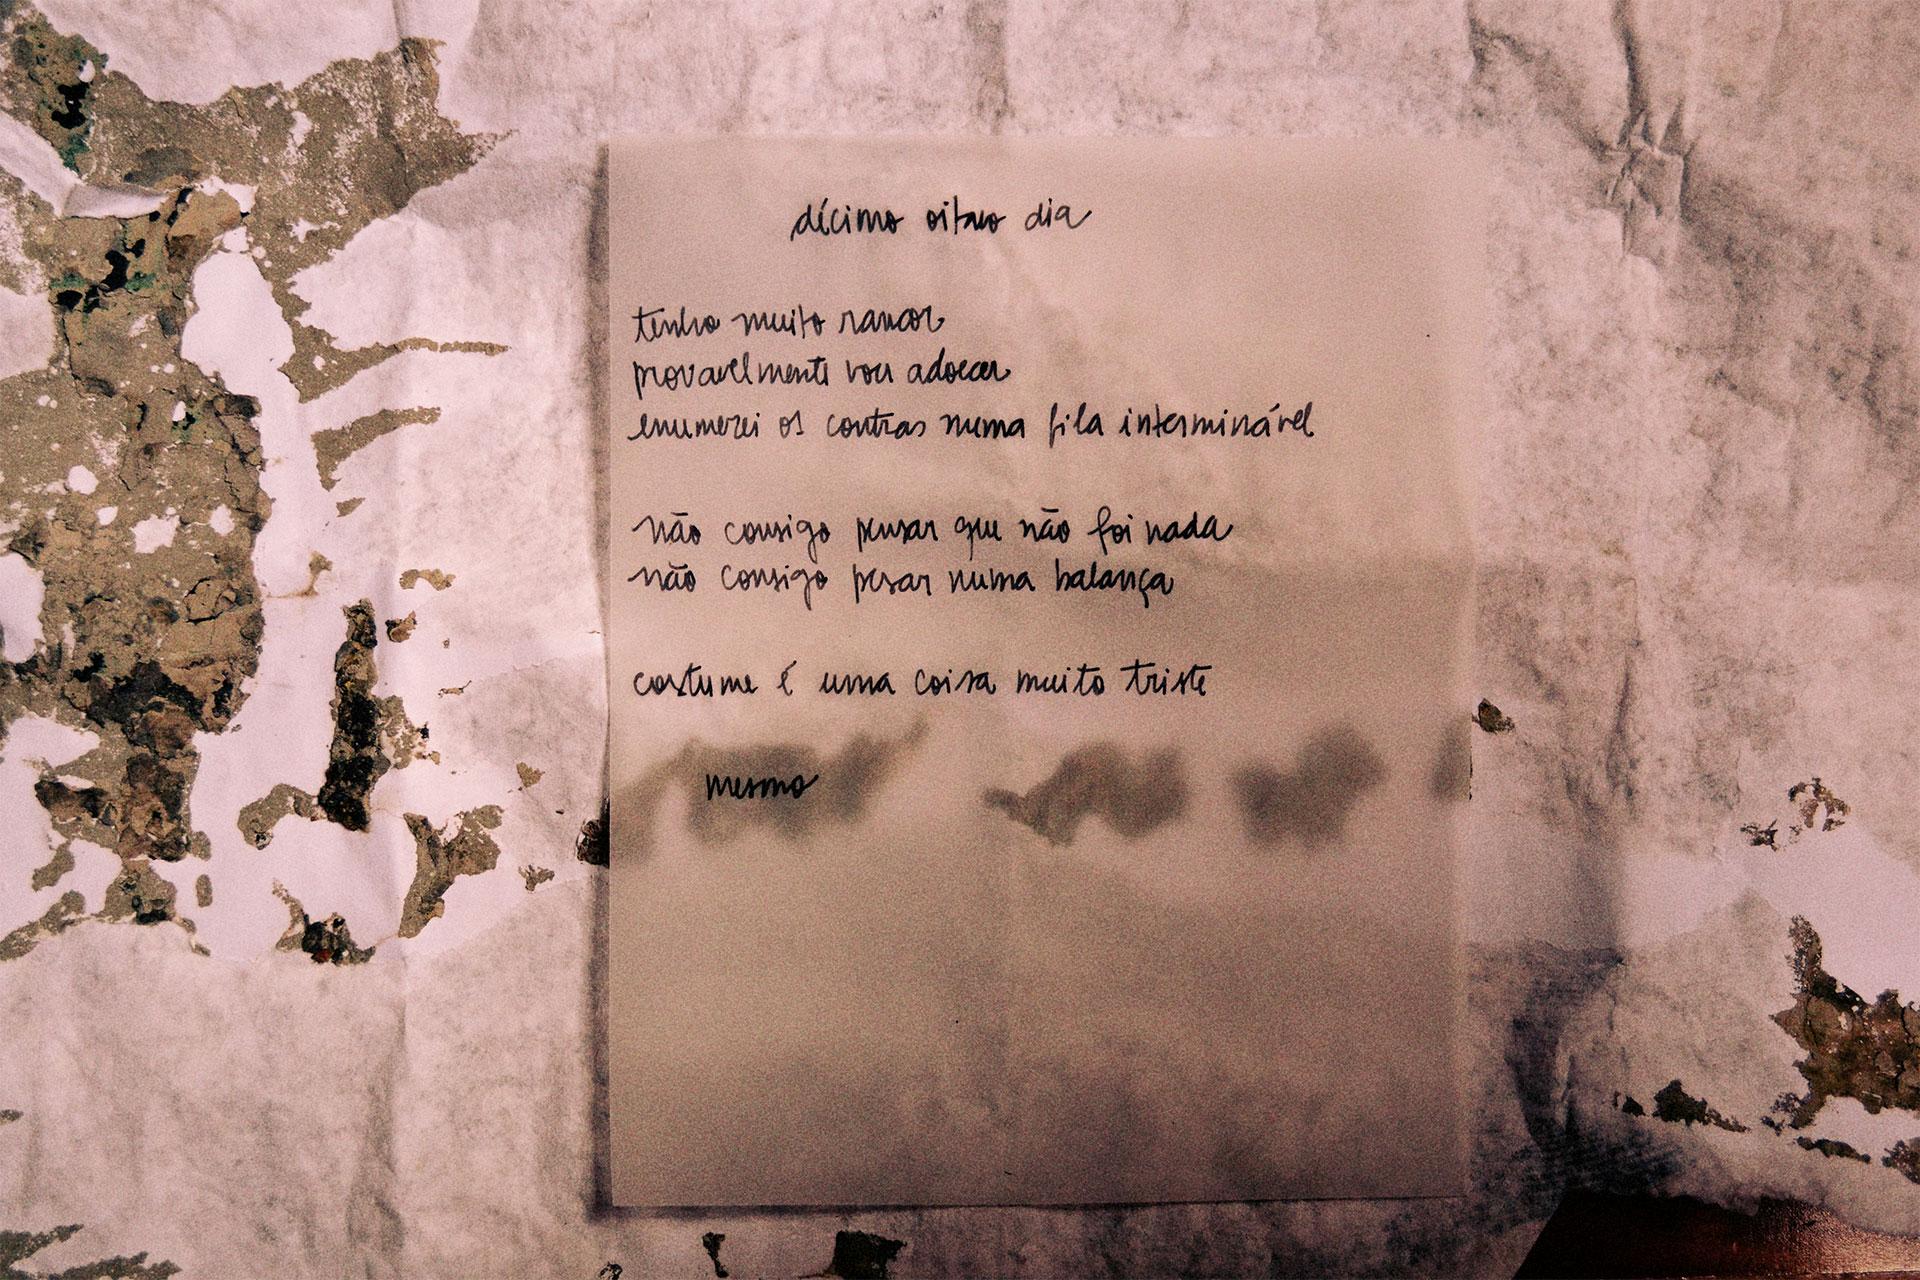 décimo oitavo dia
tenho muito rancor
provavelmente vou adoecer
enumerei os contras numa fila interminável
não consigo pensar que não foi nada
não consigo pesar numa balança
costume é uma coisa muito triste
mesmo